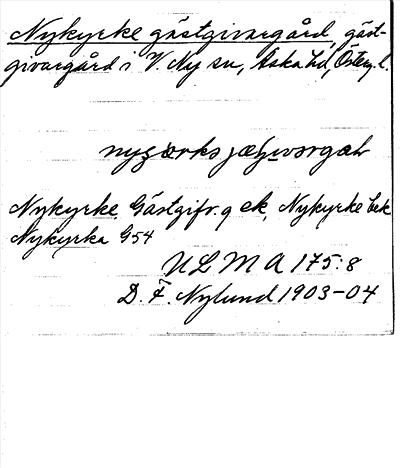 Nykyrke gästgivargård, gäst-
givargård i V. Ny sn, Aska hd, Östergl.
Nykyrke Gästgifv.g ek, Nykyrke bek
Nykyrka G54
ULMA 175:8
D. F. Nylund 1903-04